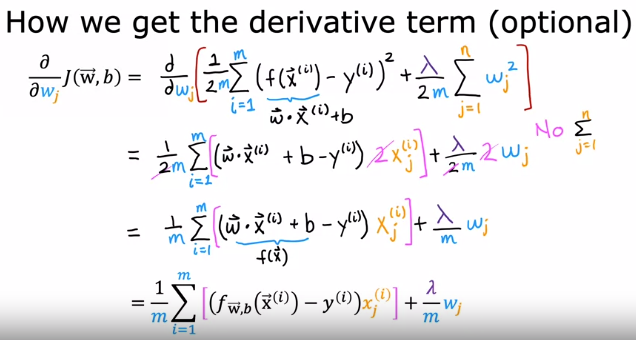 How we get the derivative term (optional)
∂/∂w_j J(w⃗, b) = ∂/∂w_j [ 1/2m Σ_{i=1}^{m} (f(x⃗^(i)) - y^(i))² + λ/2m Σ_{j=1}^{n} w_j² ]
w⃗·x⃗^(i)+b
= 1/2m Σ_{i=1}^{m} [(w⃗·x⃗^(i) + b - y^(i)) 2 x_j^(i)] + λ/2m 2 w_j No Σ_{j=1}^{n}
= 1/m Σ_{i=1}^{m} [(w⃗·x⃗^(i) + b - y^(i)) x_j^(i)] + λ/m w_j
f(x⃗)
= 1/m Σ_{i=1}^{m} [(f_{w⃗,b}(x⃗^(i)) - y^(i)) x_j^(i)] + λ/m w_j